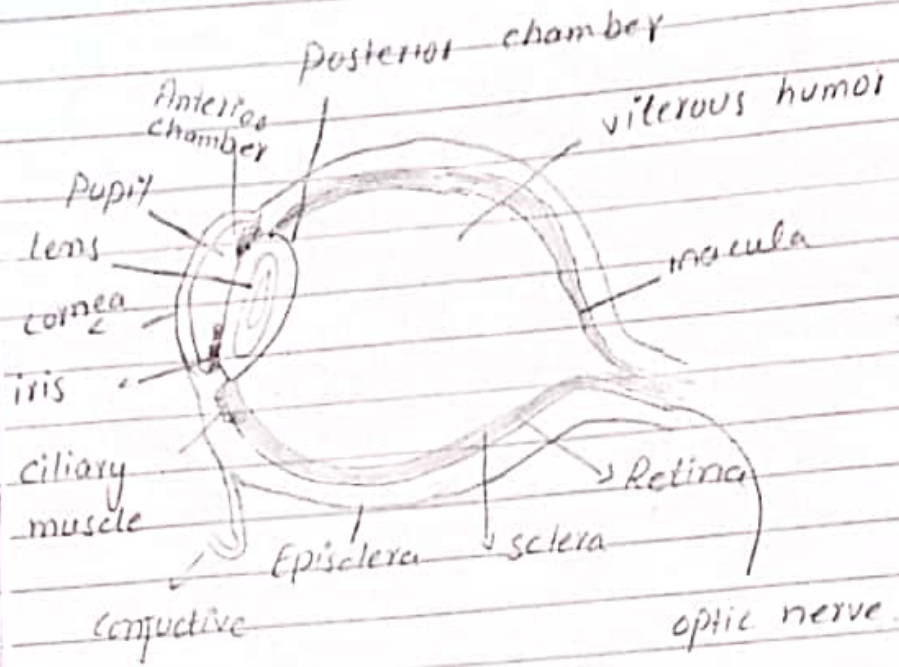 Posterior chamber
Anterior
chamber
viterous humor
Pupil
lens
macula
cornea
iris
ciliary
muscle
Retina
Episclera
sclera
Conjuctive
optic nerve.